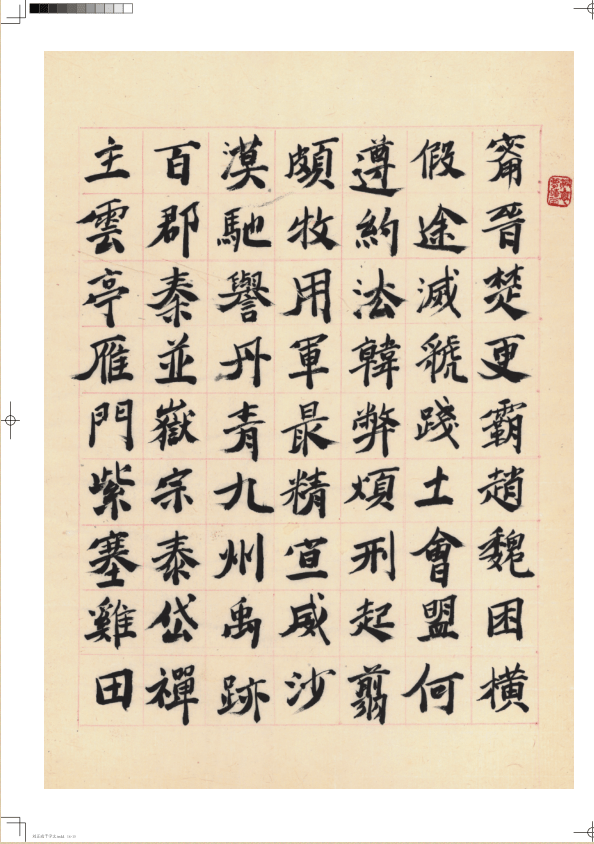 甯晉楚更霸趙魏困橫
假途滅虢踐土會盟何
遵約法韓弊煩刑起翦
頗牧用軍最精宣威沙
漠馳譽丹青九州禹跡
百郡秦並嶽宗泰岱禪
主雲亭雁門紫塞雞田